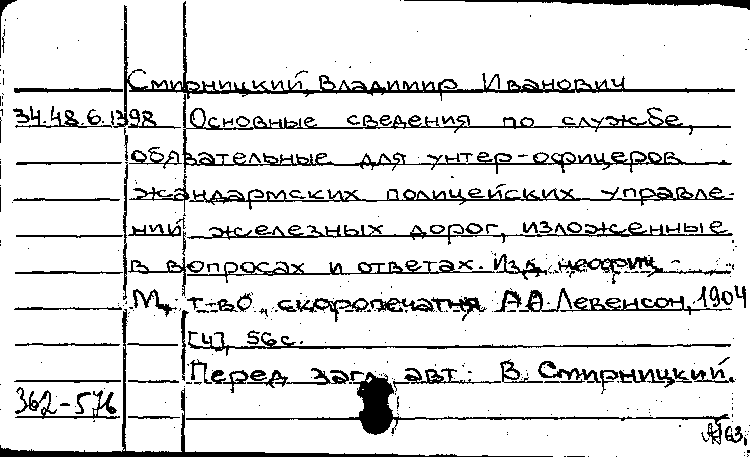 Смирницкий, Владимир Иванович
34.48.6.1398 Основные сведения по службе,
обязательные для унтер-офицеров
жандармских полицейских управле-
ний железных дорог, изложенные
в вопросах и ответах. Изд. неофиц.-
М., т-во скоропечатня А.А. Левенсон, 1904
[4], 56с.
Перед загл. авт.: В. Смирницкий.
362-576